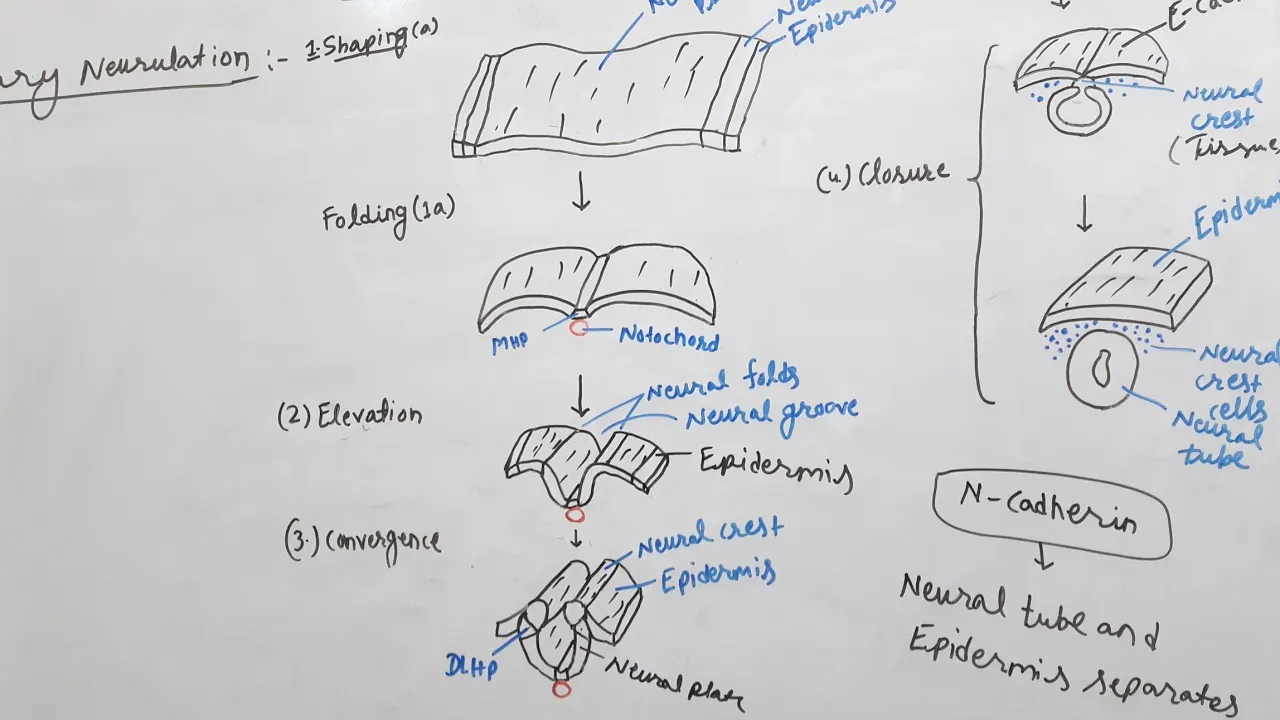 Neurulation :-
1. Shaping (a)
Epidermis
Folding (1a)
MHP
Notochord
(2) Elevation
Neural folds
Neural groove
Epidermis
(3.) Convergence
Neural crest
Epidermis
DLHP
Neural plate
(4.) Closure
Neural
crest
(Tissue
Neural
crest
cells
Neural
tube
N-Cadherin
Neural tube and
Epidermis separates